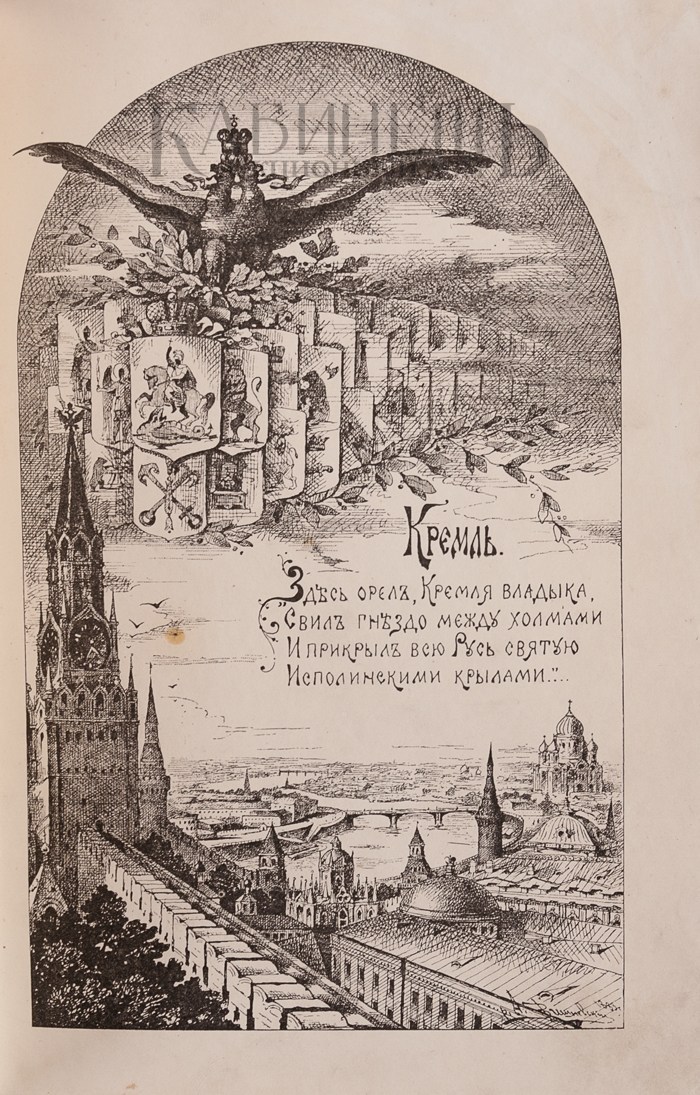 КАБИНЕТЪ
Кремль.
Здѣсь орелъ, Кремля владыка,
Свилъ гнѣздо между холмами
И прикрылъ всю Русь святую
Исполинскими крылами...